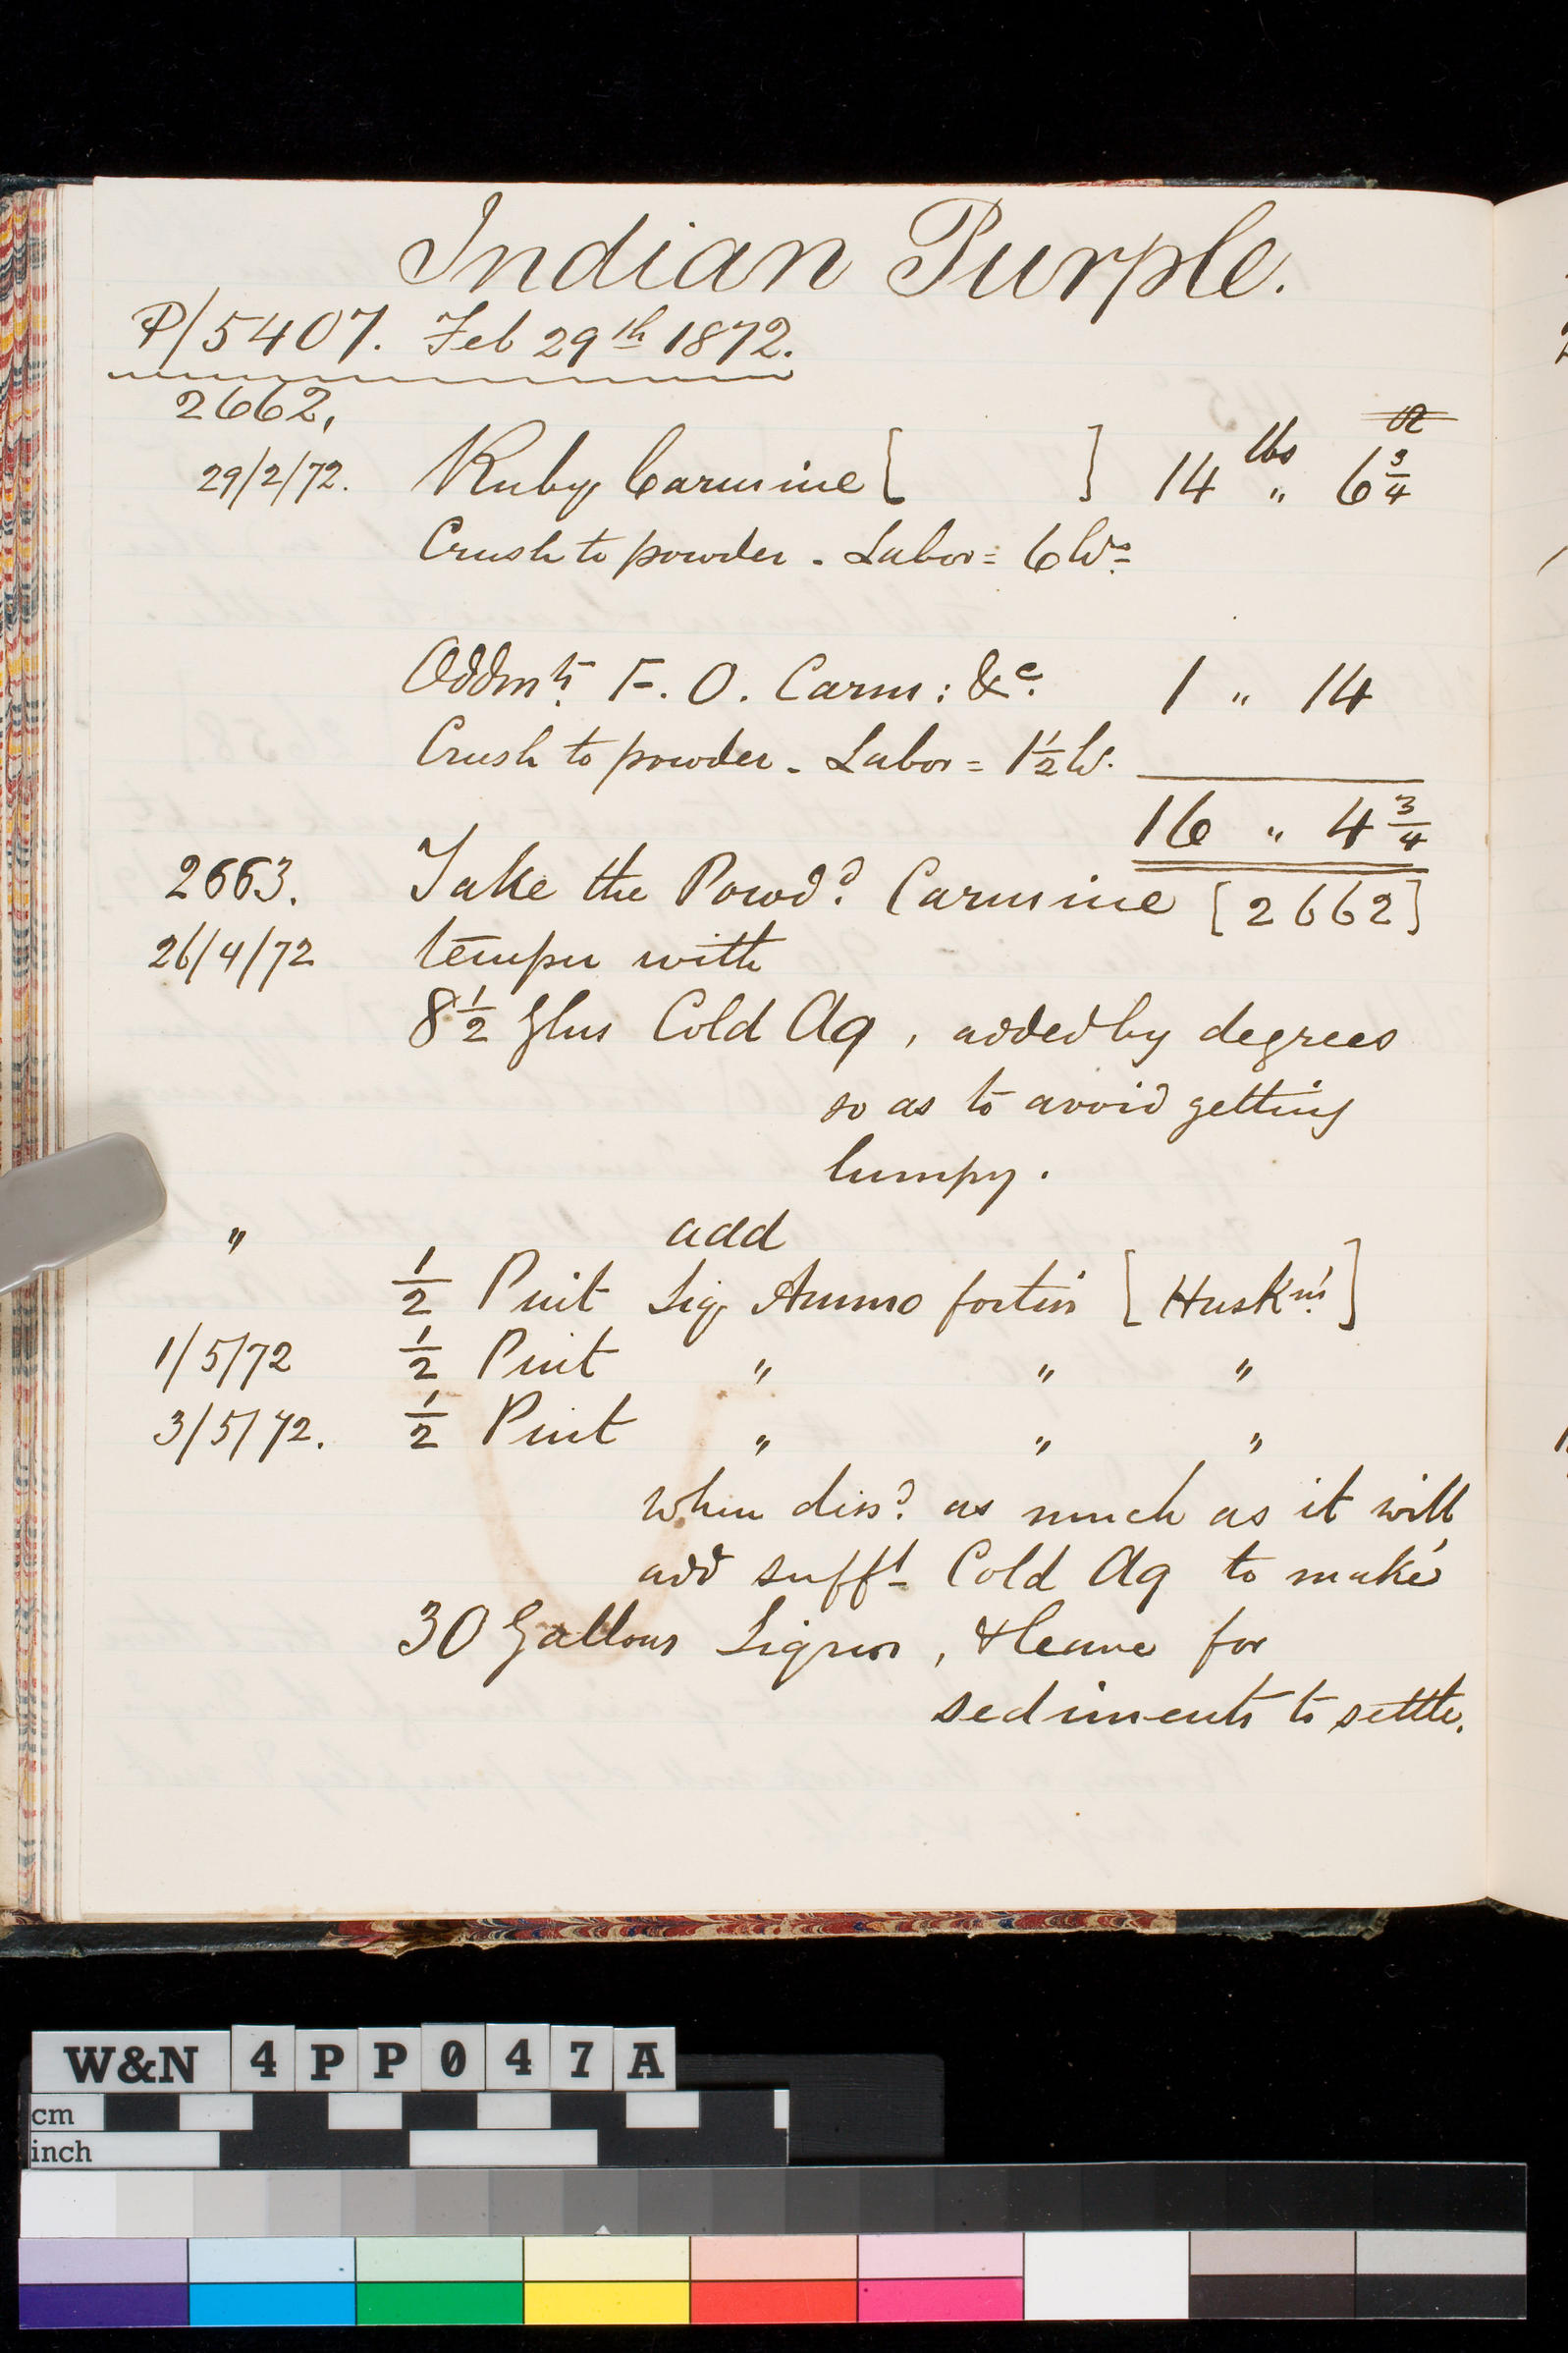 Indian Purple.
P/5407. Feb 29th 1872.
2662,
29/2/72. Ruby Carmine [ ] 14 lbs " 6 3/4
Crush to powder. Labor = 6 W
Oddmts F. O. Carm: &c. 1 " 14
Crush to powder. Labor = 1 1/2 W.
16 " 4 3/4
2663. Take the Powd. Carmine [2662]
26/4/72 temper with
8 1/2 Glns Cold Aq, added by degrees
so as to avoid getting
lumpy.
" add
1/2 Pint Liq Ammo fortis [Huskns]
1/5/72 1/2 Pint " " "
3/5/72. 1/2 Pint " " "
when diss as much as it will
add sufft Cold Aq to make
30 Gallons Liquor, & leave for
sediments to settle.
W&N 4PP047A
cm
inch